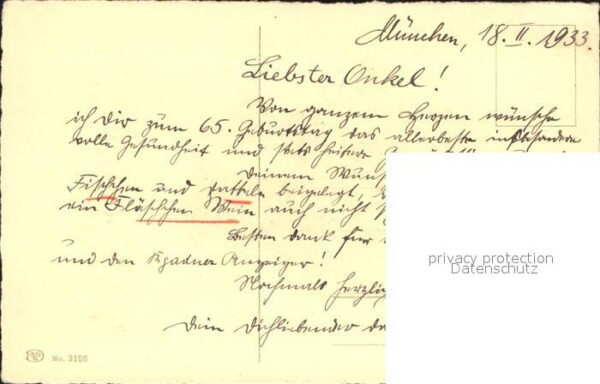 München, 18. II. 1933.
Liebster Onkel!
Von ganzem Herzen wünsche
ich Dir zum 65. Geburtstag das allerbeste insbesondere
volle Gesundheit und stets heitere
Deinem Wuns
Fischchen und Datteln beigelegt,
ein Fläschchen Wein auch nicht
Besten Dank für
und den Anzeiger!
Nochmals herzlic
Dein Dichliebender
privacy protection
Datenschutz
No. 3198